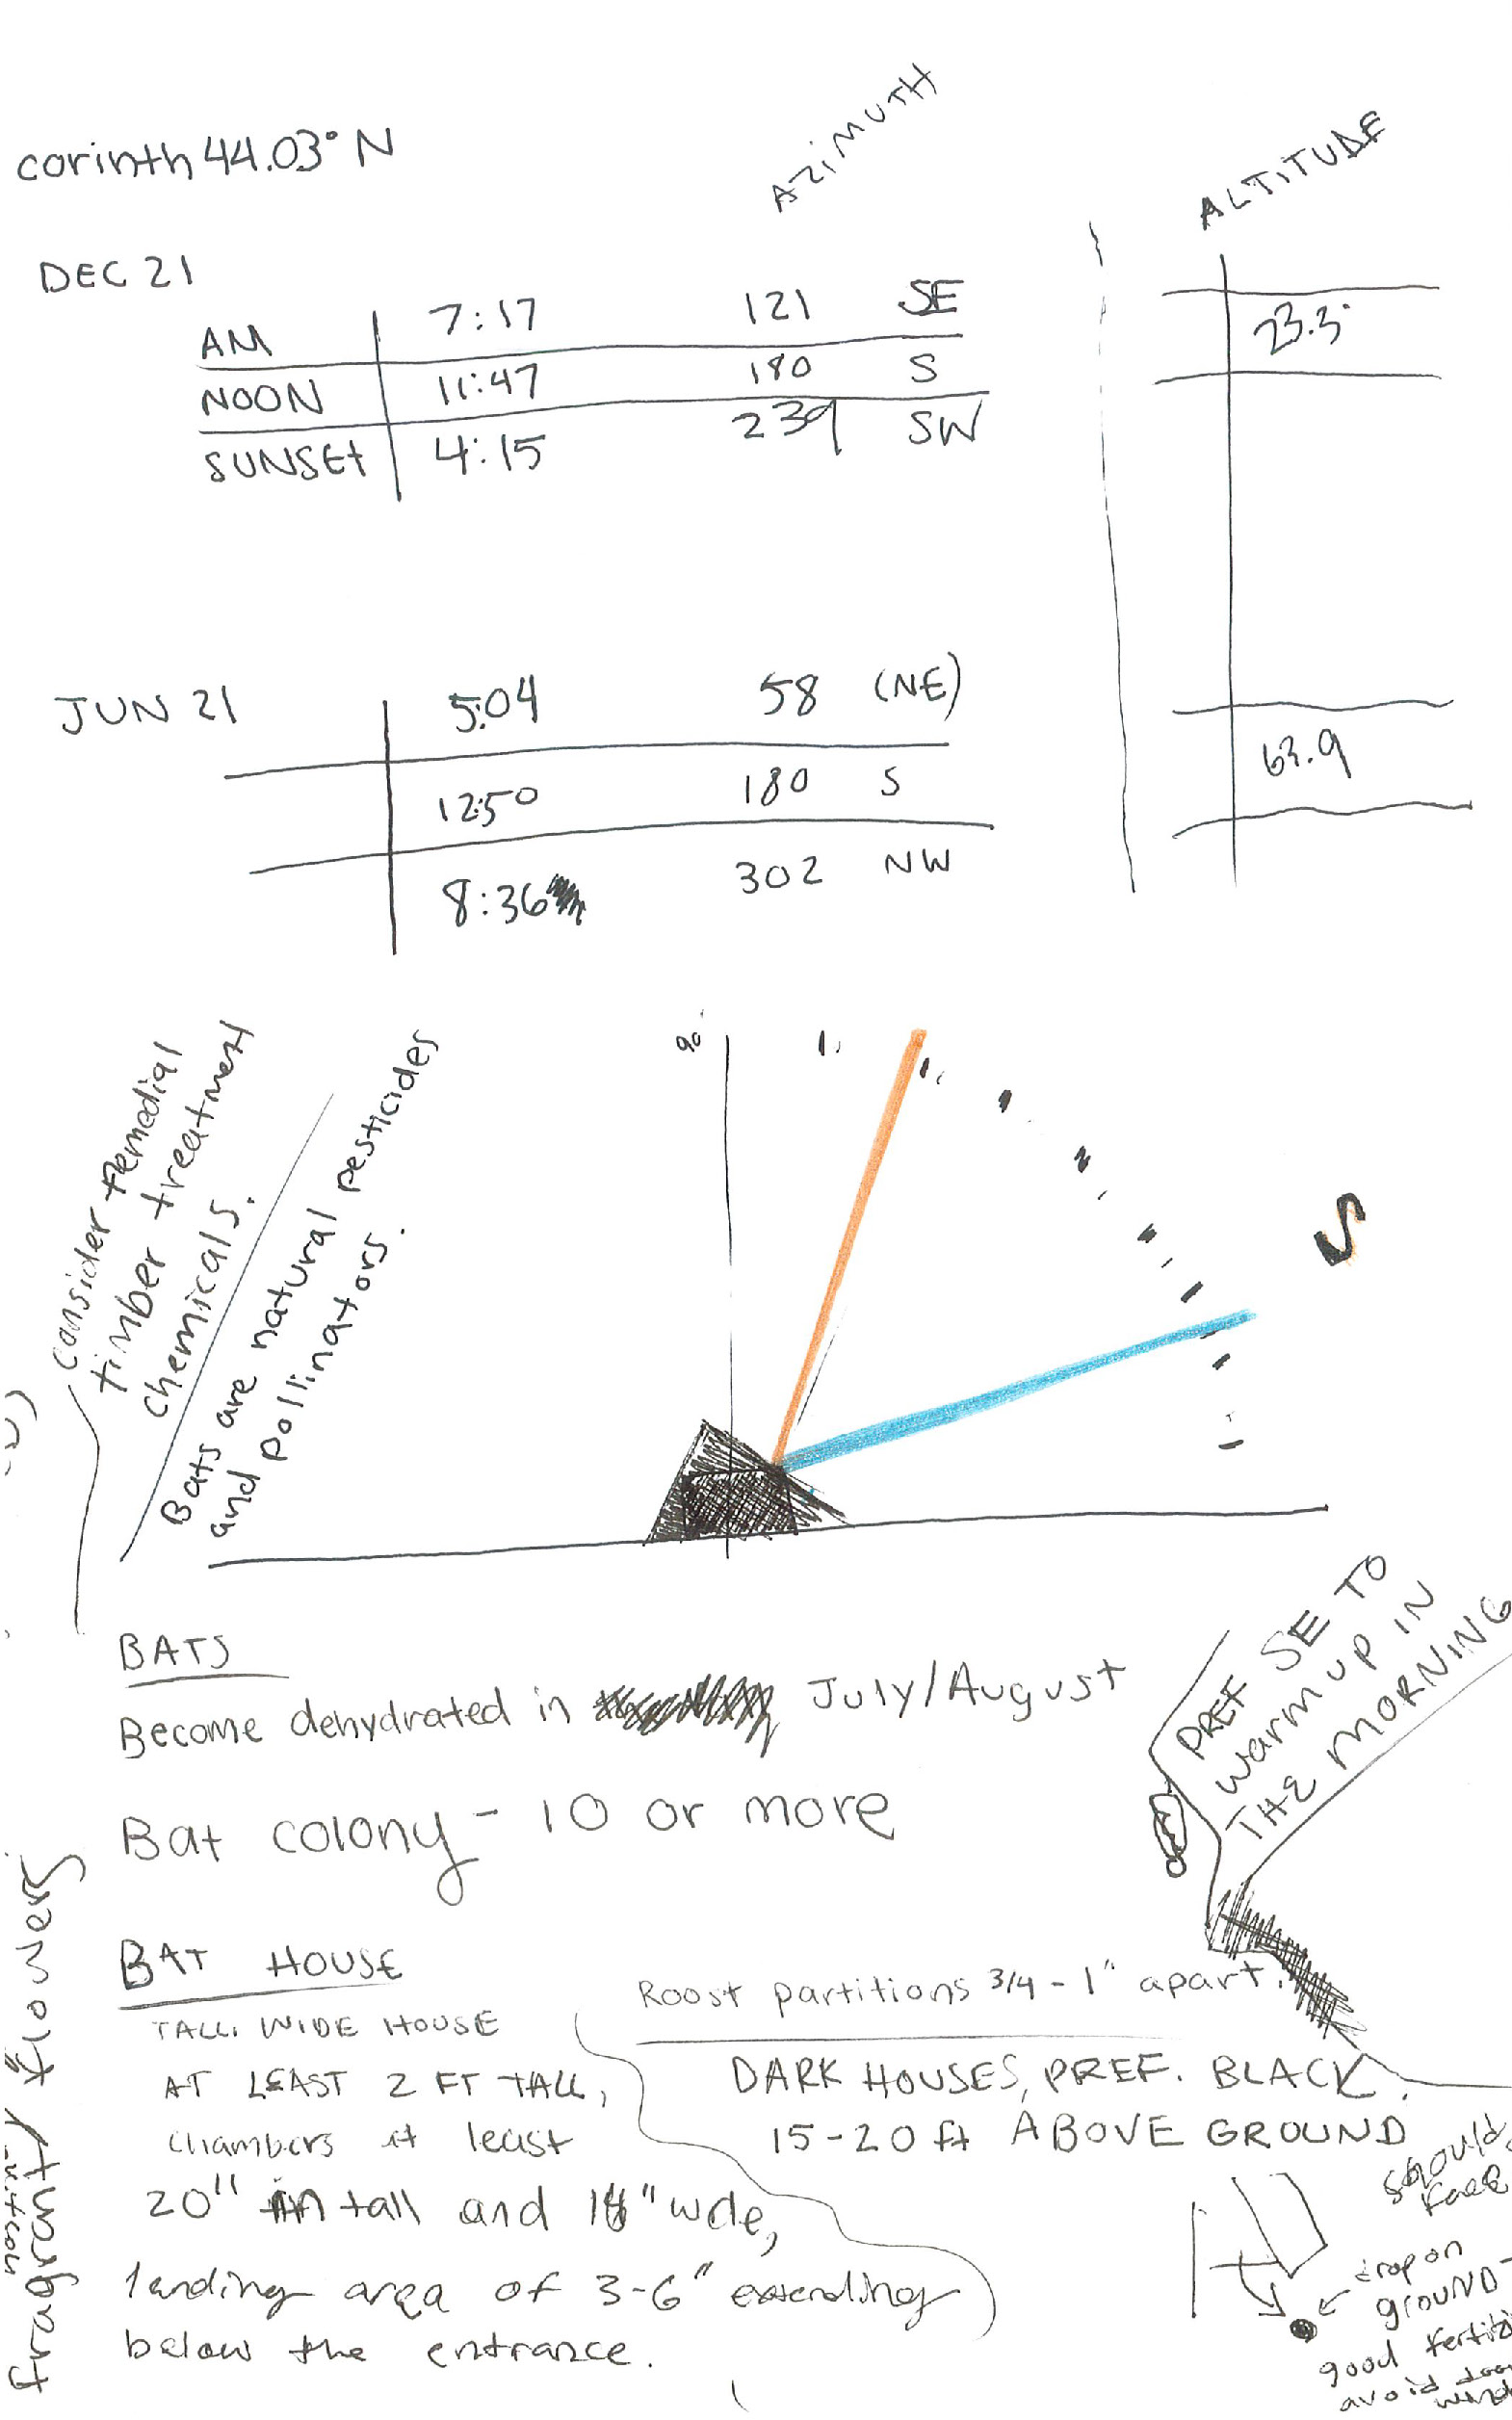 corinth 44.03° N
AZIMUTH
ALTITUDE
DEC 21
AM 7:17 121 SE
NOON 11:47 180 S
SUNSET 4:15 239 SW
23.3°
JUN 21
5:04 58 (NE)
12:50 180 S
8:36 302 NW
63.9
consider remedial
timber treatment
chemicals.
Bats are natural pesticides
and pollinators.
90°
S
BATS
Become dehydrated in July/August
Bat colony - 10 or more
PREF SE TO
warm up IN
THE MORNING
BAT HOUSE
TALL, WIDE HOUSE
AT LEAST 2 FT TALL,
chambers at least
20" tall and 18" wde,
landing area of 3-6" extending
below the entrance.
Roost partitions 3/4 - 1" apart.
DARK HOUSES, PREF. BLACK.
15-20 ft ABOVE GROUND
should
face
drop on
GROUND -
good
avoid
fragrant flowers